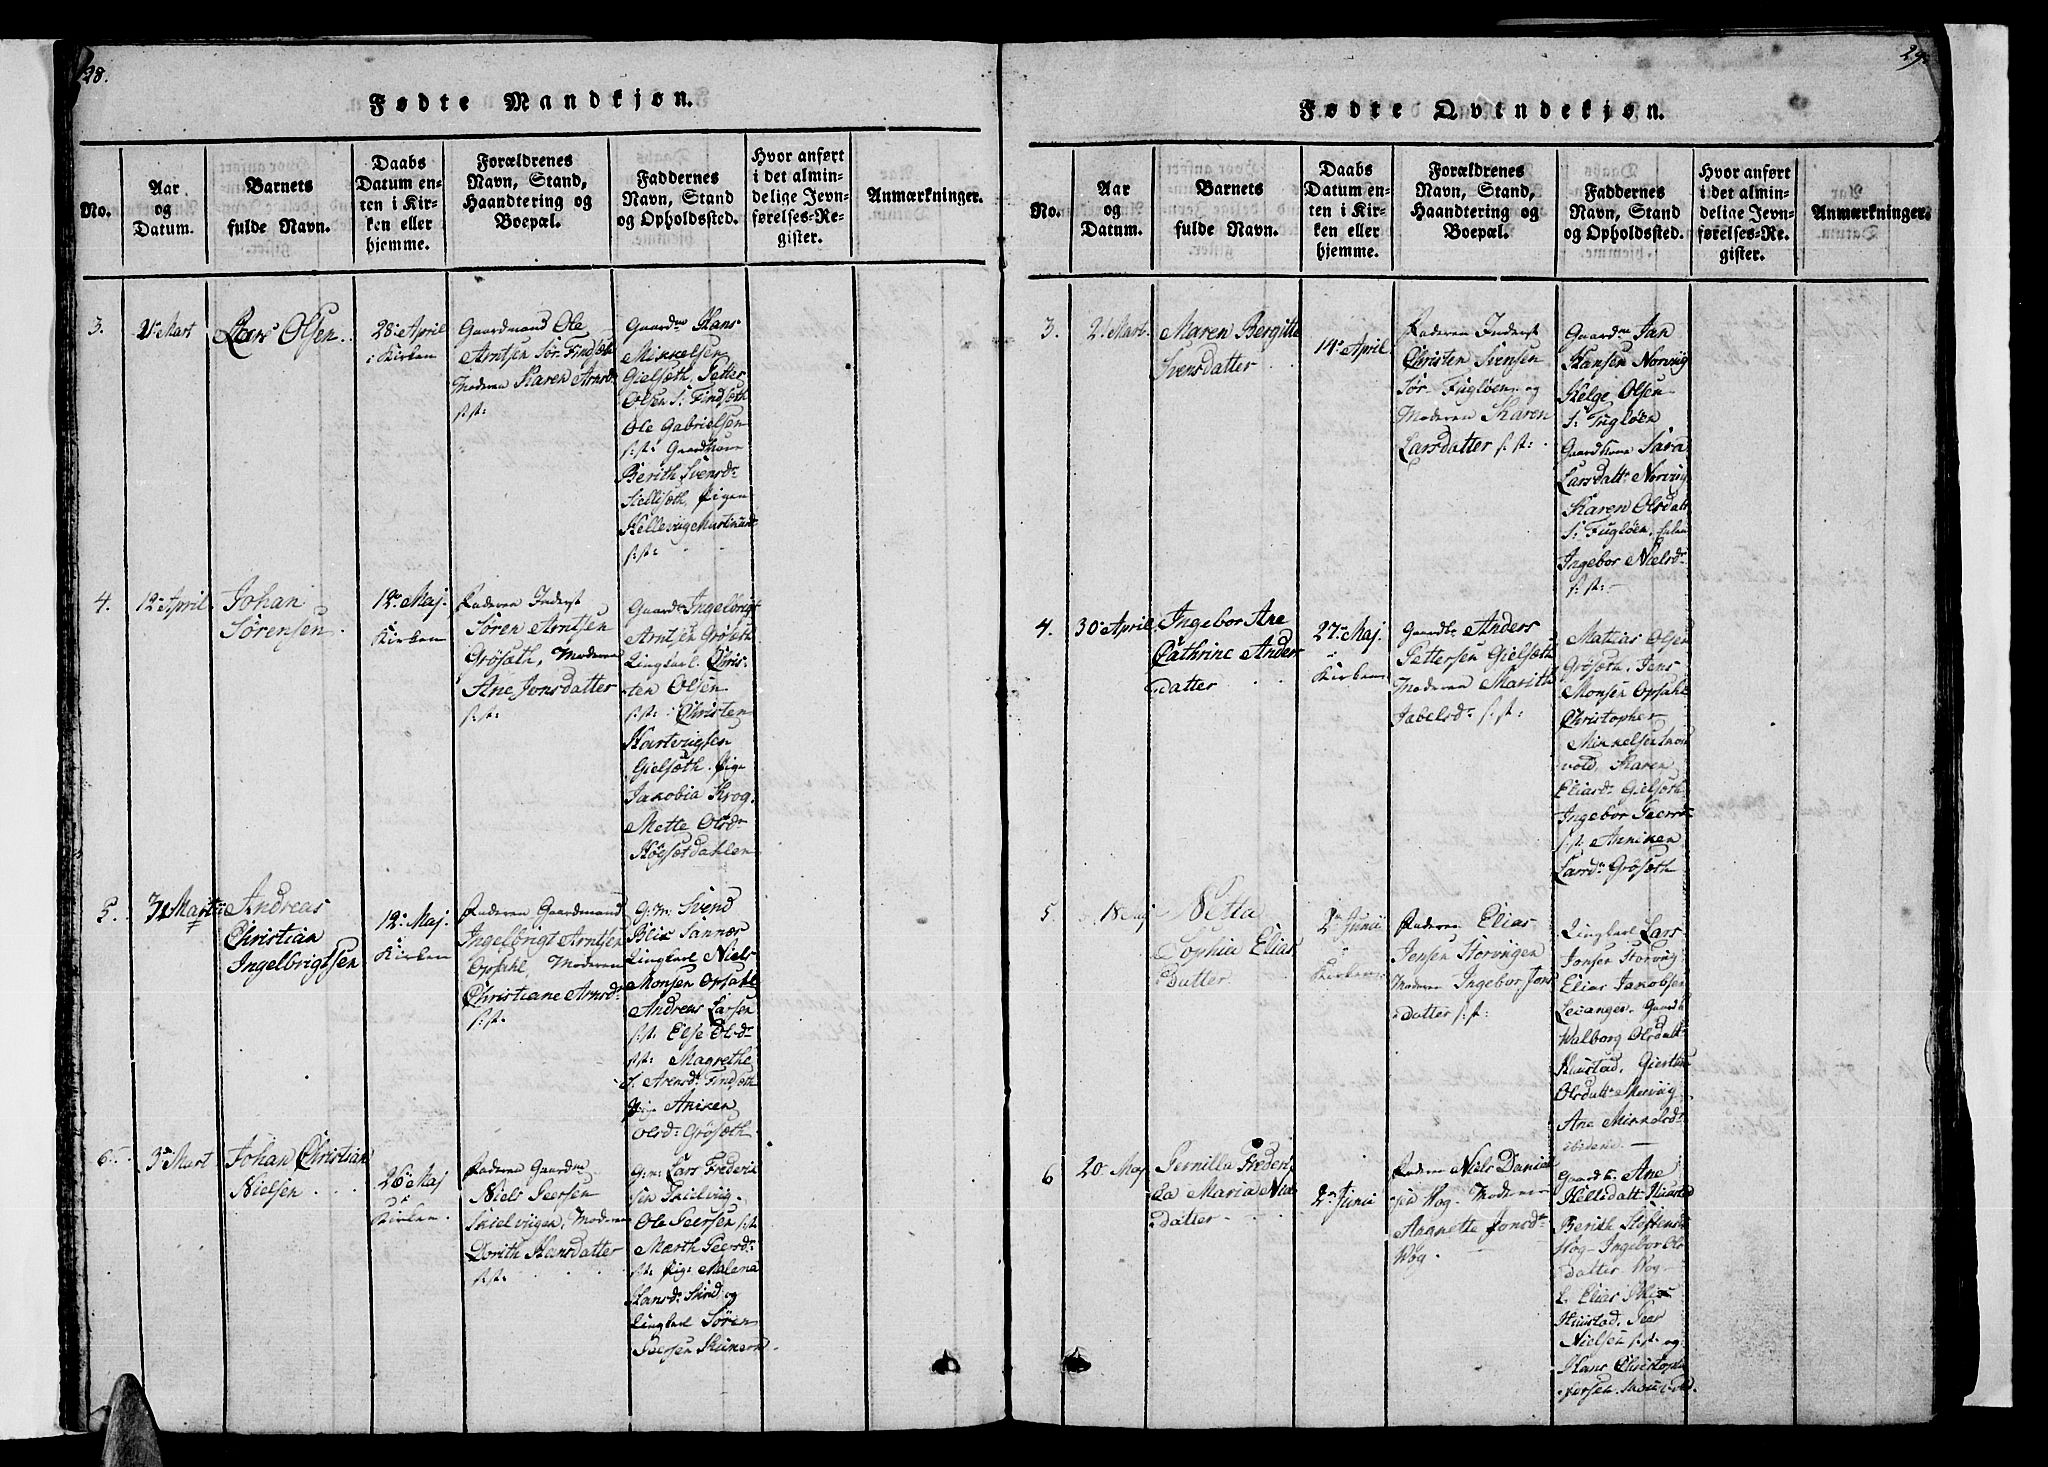 28.
Fødte Mandkjøn.
No.
Aar
og
Datum.
Barnets
fulde Navn.
Daabs
Datum en-
ten i Kir-
ken eller
hjemme.
Forældrenes
Navn, Stand,
Haandtering og
Boepæl.
Faddernes
Navn, Stand
og Opholdssted.
Hvor anført
i det almin-
delige Jevn-
førelses-Re-
gister.
Anmærkninger.
3.
2de Mart
Lars Olsen
28de April
i Kirken
Gaardmand Ole
Arntsen Sør. Findsæth
Moderen Karen Arnsd.
s: st:
Gaardm Hans
Mikkelsen
Gielsæth, Petter
Olsen S: Findsæth
Ole Gabrielsen
s: st: Gaardkone
Berith Svensdr
Siellisæth, Pigen
Hellevig Martinusdr
s: st:
4.
12te April
Johan
Sørensen
12te Maj.
Kirken
Faderen Inderst
Søren Arntsen
Grösæth, Moderen
Ane Jonsdatter
s: st:
Gaardm Ingelbrigt
Arntsen Grösæth
Ungkarl Chris-
ten Olsen
s: st: Christen
Hartvigsen
Gielsæth. Pige
Jakobia Krog.
Mette Olsdr
Høgsetdahlen
5.
Andreas
Christian
Ingelbrigtsen
12te Maj.
Kirken
Faderen Gaardmand
Ingelbrigt Arntsen
Opsahl, Moderen
Christiane Arnsdr
s: st:
G: M: Svend
Blix Sannær
Ungkarl Niels
Monsen Opsahl
Andreas Larsen
s: st: Else Olsdr
s: st: Magrethe
S. Arensdr Findsæth
Pige Aniken
Olsdr Grösæth
6.
3de Mart
Johan Christian
Nielsen
26de Maj
i
Kirken
Faderen Gaardm
Niels Peersen
Skielviigen, Moderen
Dorith Hansdatter
s: st:
G: m: Lars Frederik
sen Skielviig.
Ole Peersen s: st:
Marth Peersdr
s: st: Pige Malena
Hansdr Skind og
Ungkarl Søren
Peersen
29.
Fødte Qvindekjøn.
No.
Aar
og
Datum.
Barnets
fulde Navn.
Daabs
Datum en-
ten i Kir-
ken eller
hjemme.
Forældrenes
Navn, Stand,
Haandtering og
Boepæl.
Faddernes
Navn, Stand
og Opholdssted.
Hvor anført
i det almin-
delige Jevn-
førelses-Re-
gister.
Anmærkninger.
3.
2. Mart.
Maren Bergitte
Svensdatter
14de April
Faderen Inderst
Christen Svensen
Sør. Fugløen og
Moderen Karen
Larsdatter s: st:
Gaardm Jan
Hansen Norvig
Helge Olsen
S: Fugløen
Gaardkone Sara
Larsdattr Norvig
Karen Olsdatt
S: Fugløen,
Ingebor Nielsdr
s: st:
4.
30te April
Ingebor Ane
Cathrine Anders
datter
27de Maj
i
Kirken
Gaardb. Anders
Pettersen Gielsæth
Moderen Marith
Jabelsdr s: st:
Matias Olsen
Grösæth. Jens
Monsen Opsahl
Christopher
Mikkelsen
vold, Karen
Eliasdr Gielsæth
Ingebor Peersdr
s: st. Anniken
Larsdr Grösæth
5.
18 Maj
Netta
Sophia Elias
datter
2de Junii
i
Kirken
Faderen Elias
Jensen Storvigen
Moderen Ingebor Jons
datter s: st:
Ungkarl Lars
Jonsen Storviig
Elias Jakobsen
Leianger. Gaardk
Walborg Olsdatt
Haustad, Giertrud
Olsdattr
Ane Mikkelsdr
ibidem.
6
20 Maj
Pernilla Frederi-
ka Maria Niels
datter
2den Junii
Faderen Niels Daniel
sen Wog. Moderen
Angnette Jonsdr
Wog.
Gaardk. Ane
Berith
Wog. Ingebor Ols
datter Wog
Elias
Haustad. Peer
Nielsen s: st: og
Hans Christoph